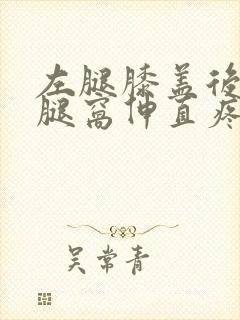 左腿膝盖後
腿窝伸直疼
吴常青